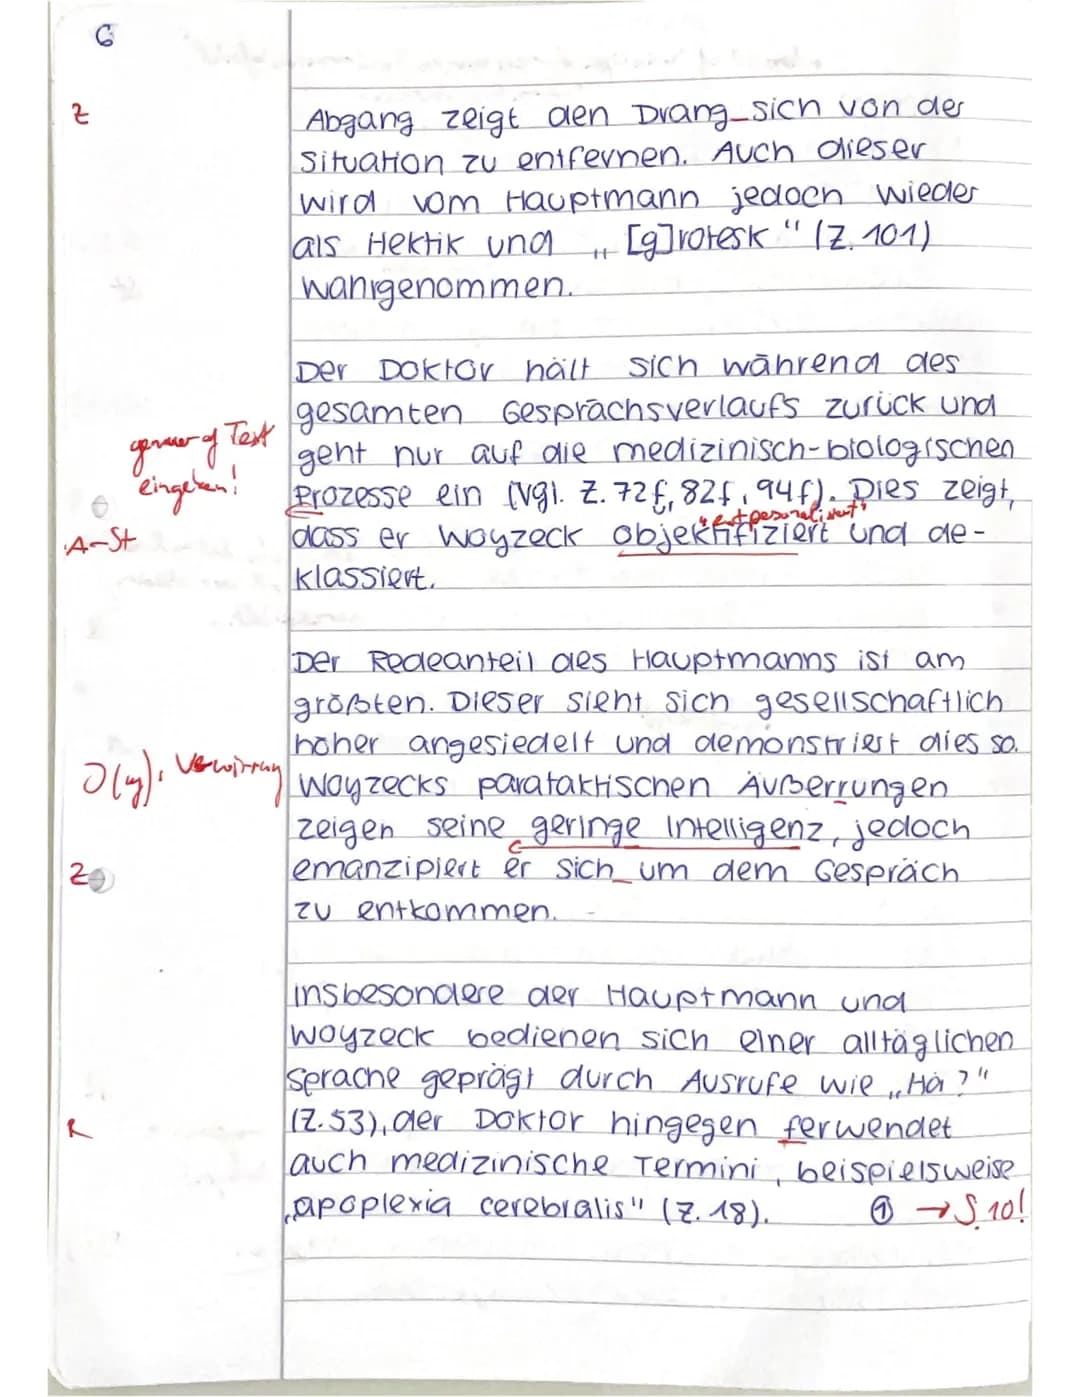 6
Z
Abgang zeigt den Drang sich von der
Situation zu entfernen. Auch dieser
wird vom Hauptmann jedoch wieder
als Hektik und „[g]rotesk" (Z. 101)
wahrgenommen.
Der Doktor hält sich während des
gesamten Gesprächsverlaufs zurück und
genauer auf Text
eingehen!
geht nur auf die medizinisch-biologischen
Prozesse ein (vgl. Z. 72f, 82f, 94f). Dies zeigt,
"entpersonalisiert"
A-St
dass er Woyzeck objektifiziert und de-
klassiert.
Der Redeanteil des Hauptmanns ist am
größten. Dieser sieht sich gesellschaftlich
höher angesiedelt und demonstriert dies so.
Verwirrung
Woyzecks parataktischen Äußerrungen
zeigen seine geringe Intelligenz, jedoch
Z
emanzipiert er sich um dem Gespräch
zu entkommen.
Insbesondere der Hauptmann und
Woyzeck bedienen sich einer alltäglichen
Sprache geprägt durch Ausrufe wie „Hä?"
R
(Z. 53), der Doktor hingegen ferwendet
auch medizinische Termini, beispielsweise
„apoplexia cerebralis" (Z. 18).
① → S. 10!